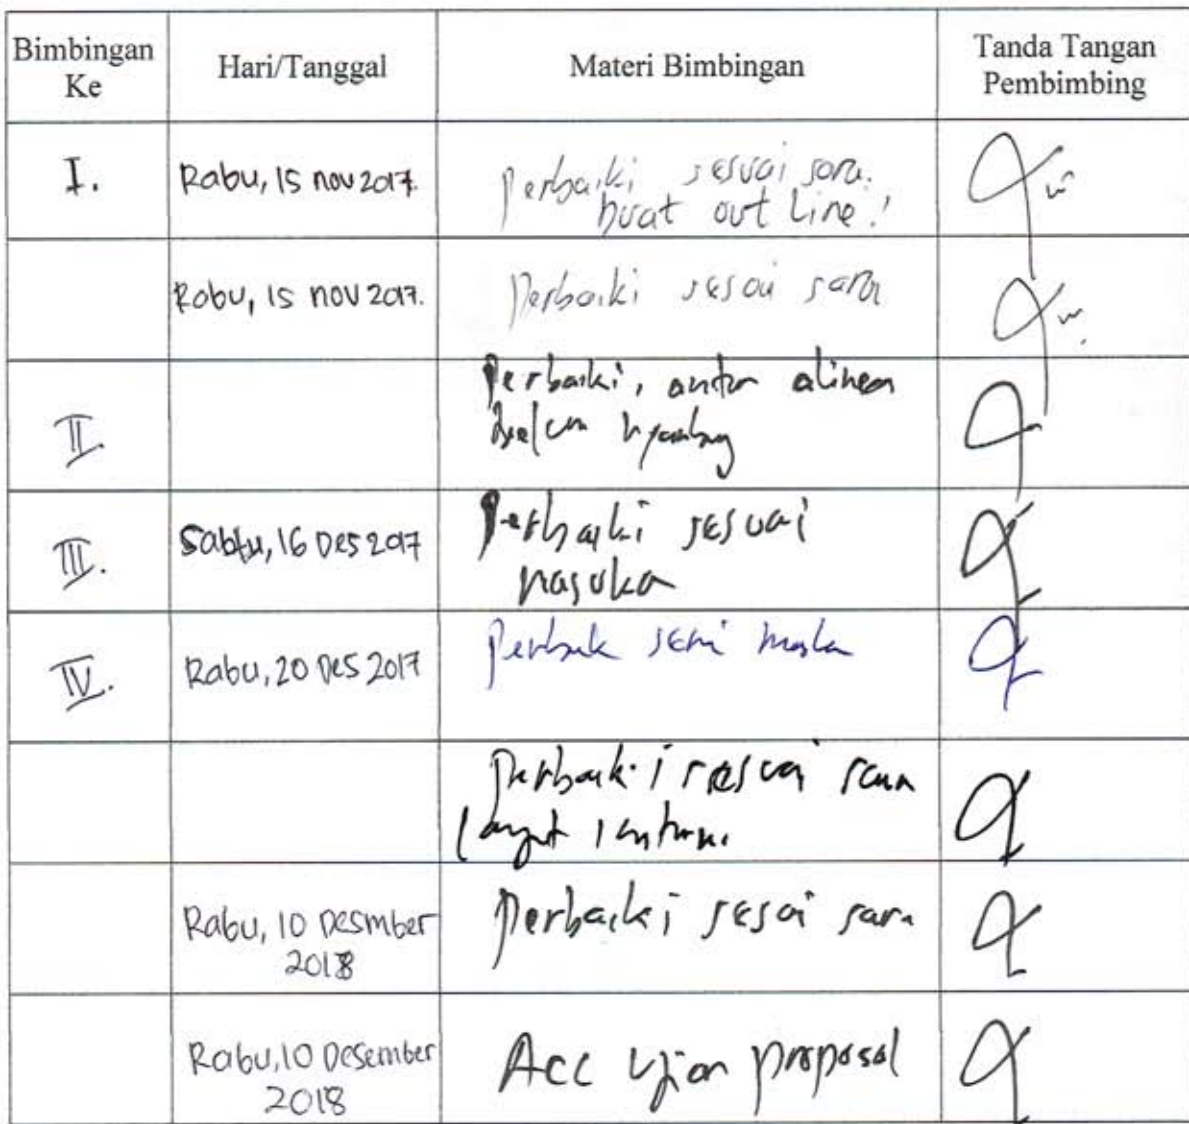 Bimbingan Ke
Hari/Tanggal
Materi Bimbingan
Tanda Tangan Pembimbing
I.
Rabu, 15 nov 2017.
Perbaiki sesuai sara.
buat out Line!
Rabu, 15 nov 2017.
Perbaiki sesai sara
II.
Perbaiki, antar alinea
belum nyambung
III.
Sabtu, 16 Des 2017
Perbaiki sesuai
masuka
IV.
Rabu, 20 Des 2017
Perbaiki sesuai
Rabu, 10 Desmber
2018
Perbaiki sesai sara
Rabu, 10 Desember
2018
Acc Ujian proposal